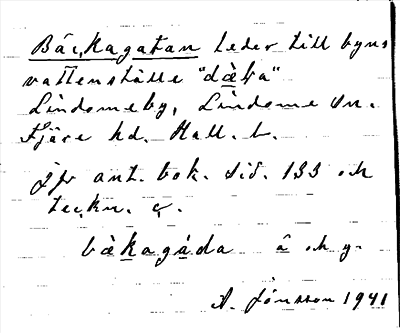 Bäckagatan leder till byns
vattenställe "dæka"
Lindomeby, Lindome sn.
Fjäre hd. Hall. l.
Jfr ant. bok. sid. 133 och
teckn. c.
bækagáda â och y.
A. Jönsson 1941